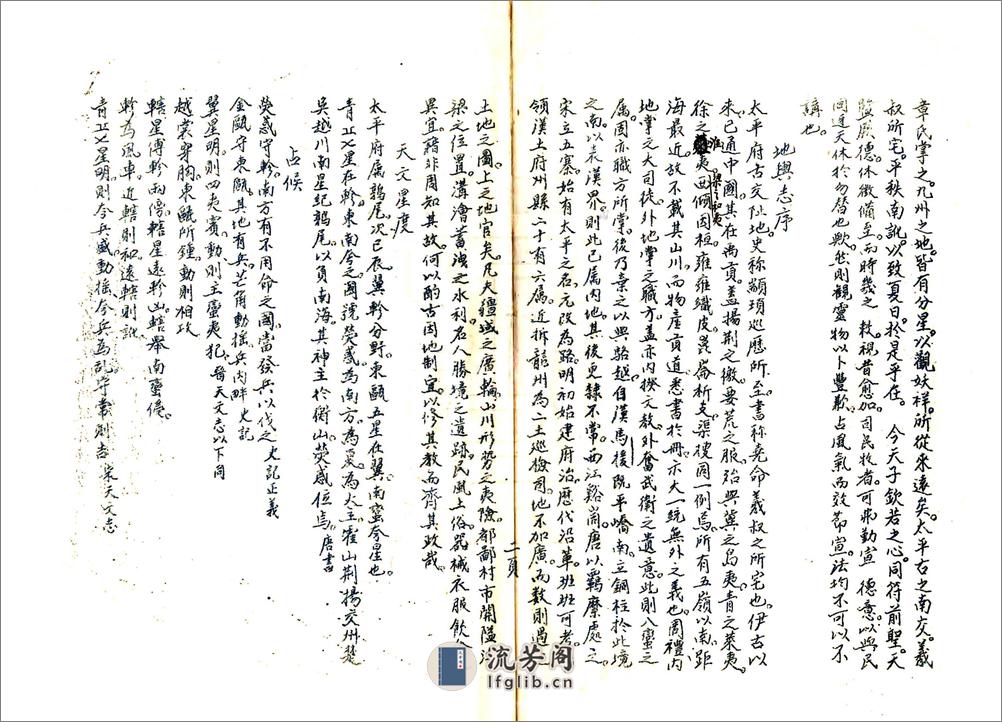 章氏掌之九州之地皆有分星以觀妖祥所從来遠矣太平古之南交羲
叔所宅平秩南訛以致夏日於是乎在　今天子欽若之心同符前聖天
監厥德休徵備至而時幾之　軼視昔愈加司民牧者可弗勤宣　德意以與民
同迓天休於勿替也歟然則觀靈物以卜豐歉占風氣而效節宣法均不可以不
講也
地輿志序
太平府古交阯地史称顓頊巡歷所至書称堯命羲叔之所宅也伊古以
来已通中國其在禹貢盖揚荆之徼要荒之服殆與冀之島夷青之莱夷
徐之淮夷梁和夷西傾因桓雍雍織皮崑崙析支渠搜同一例焉所有五嶺以南距
海最近故不載其山川而物産貢道悉書於冊亦大一統無外之義也周禮内
地掌之大司徒外地掌之職方盖亦内揆文教外奮武衛之遺意此則八蠻之
属固亦職方所掌後乃棄之以與駱越自漢馬援既平嶠南立銅柱於此境
之南以表漢界則此已属内地其後更隸不常西江谿崗唐以羈縻處之
宋立五寨始有太平之名元改為路明初始建府治歷代沿革班班可考
領漢土府州縣二十有六属近拆龍州為二土巡檢司地不加廣而數則過
土地之圖上之地官矣凡夫疆域之廣輪山川形勢之夷險都鄙村市關隘
梁之位置溝澮蓄洩之水利名人勝境之遺跡民風土俗器械衣服飲食
異宜籍非周知其故何以酌古因地制宜以修其教而濟其政哉
天文星度
太平府属鶉尾次巳辰翼軫分野東甌五星在翼南蠻今星也
青丘七星在軫東南今之國號熒惑為南方為夏為火主霍山荆揚交州楚
吳越川南星紀鶉尾以負南海其神主於衡山熒惑位焉唐書
占候
熒惑守軫南方有不用命之國當發兵以伐之史記正義
金甌守東甌其地有兵芒角動搖兵内畔史記
翼星明則四夷賓動則主蠻夷犯晉天文志以下同
越裳穿胸東鯷所鍾動則相攻
轄星傅軫兩傍轄星遠軫凶轄舉南蠻侵
軫為風車近轄則和遠轄則訛
青丘七星明則今兵盛動搖今兵為乱守常則吉宋天文志
二頁
流芳阁
lfglib.cn